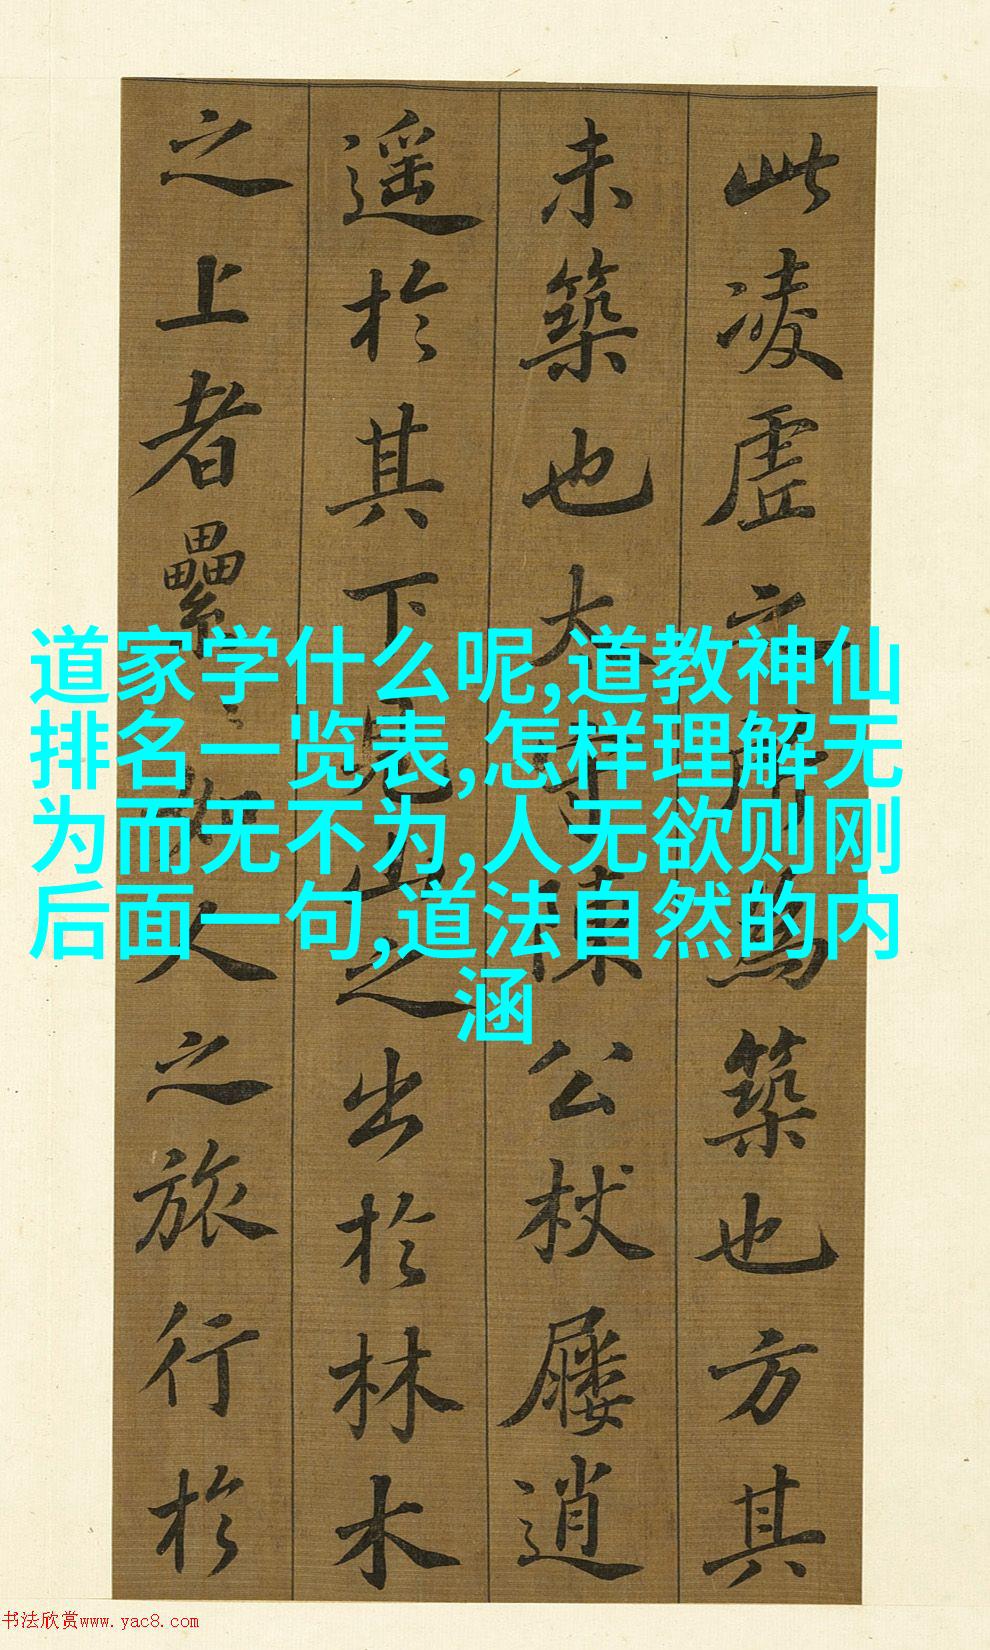 此凌虚之所為築也方其
未築也大守陳公杖屨逍
遥於其下見山之出於林木
之上者纍々如人之旅行於
道家学什么呢,道教神仙
排名一览表,怎样理解无
为而无不为,人无欲则刚
后面一句,道法自然的内
涵
书法欣赏www.yac8.com